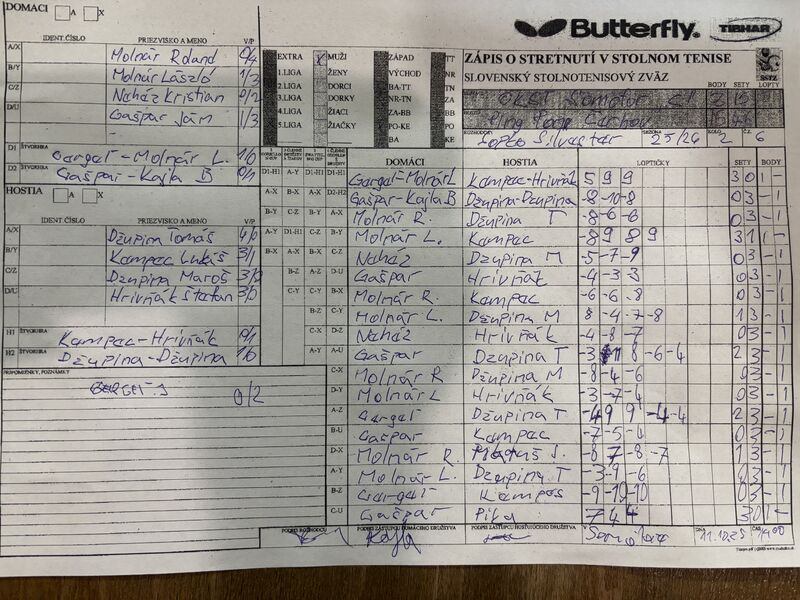 DOMÁCI A X
IDENT.ČÍSLO PRIEZVISKO A MENO V/P
A/X Molnár Roland 0/4
B/Y Molnár László 1/3
C/Z Naház Kristian 0/2
D/U Gašpar Ján 1/3
D1 ŠTVORHRA Gergeľ-Molnár L. 1/0
D2 ŠTVORHRA Gašpar-Kajla B 0/1
HOSTIA A X
IDENT.ČÍSLO PRIEZVISKO A MENO V/P
A/X Džupina Tomáš 4/0
B/Y Kampac Lukáš 3/1
C/Z Džupina Maroš 3/0
D/U Hrivňák Štefan 3/0
H1 ŠTVORHRA Kampac-Hrivňák 0/1
H2 ŠTVORHRA Džupina-Džupina 1/0
PRIPOMIENKY, POZNÁMKY
0/2
Butterfly TIBHAR
EXTRA X MUŽI ZÁPAD TT
1.LIGA ŽENY VÝCHOD TN
2.LIGA DORCI BA-TT NR
3.LIGA DORKY NR-TN ZA
4.LIGA ŽIACI ZA-BB BB
5.LIGA ŽIAČKY PO-KE PO
BA KE
ZÁPIS O STRETNUTÍ V STOLNOM TENISE
SLOVENSKÝ STOLNOTENISOVÝ ZVÄZ SSTZ
BODY SETY LOPTY
Ping Pong
ROZHODCA Silvester SEZÓNA 25/26 KOLO 2 Č.Z. 6
DOMÁCI HOSTIA LOPTIČKY SETY BODY
D1-H1 Gergeľ-Molnár L Kampac-Hrivňák 5 9 9 3 0 1 -
D2-H2 Gašpar-Kajla B Džupina-Džupina -8 -10 -8 0 3 - 1
A-X Molnár R. Džupina T -8 -6 -6 0 3 - 1
B-Y Molnár L. Kampac -8 9 8 9 3 1 1 -
C-Z Naház Džupina M -5 -7 -9 0 3 - 1
D-U Gašpar Hrivňák -4 -3 -3 0 3 - 1
A-Y Molnár R. Kampac -6 -6 -8 0 3 - 1
B-Z Molnár L. Džupina M 8 -4 -7 -8 1 3 - 1
C-U Naház Hrivňák -4 -8 -7 0 3 - 1
D-X Gašpar Džupina T -3 8 -6 -4 2 3 - 1
C-X Molnár R Džupina M -8 -4 -6 0 3 - 1
D-Y Molnár L Hrivňák -3 -7 -4 0 3 - 1
A-Z Gergeľ Džupina T -4 9 9 -4 -4 2 3 - 1
B-U Gašpar Kampac -7 -5 -4 0 3 - 1
D-X Molnár R. -8 7 -8 -7 1 3 - 1
A-Y Molnár L. Džupina T -3 -9 -6 0 3 - 1
B-Z Gergeľ Kampos -9 -10 -10 0 3 - 1
C-U Gašpar Pika 7 4 4 3 0 1 -
PODPIS ROZHODCU PODPIS ZÁSTUPCU DOMÁCEHO DRUŽSTVA PODPIS ZÁSTUPCU HOSŤUJÚCEHO DRUŽSTVA V DŇA 11.10.25 ČAS 14,00
Kajla